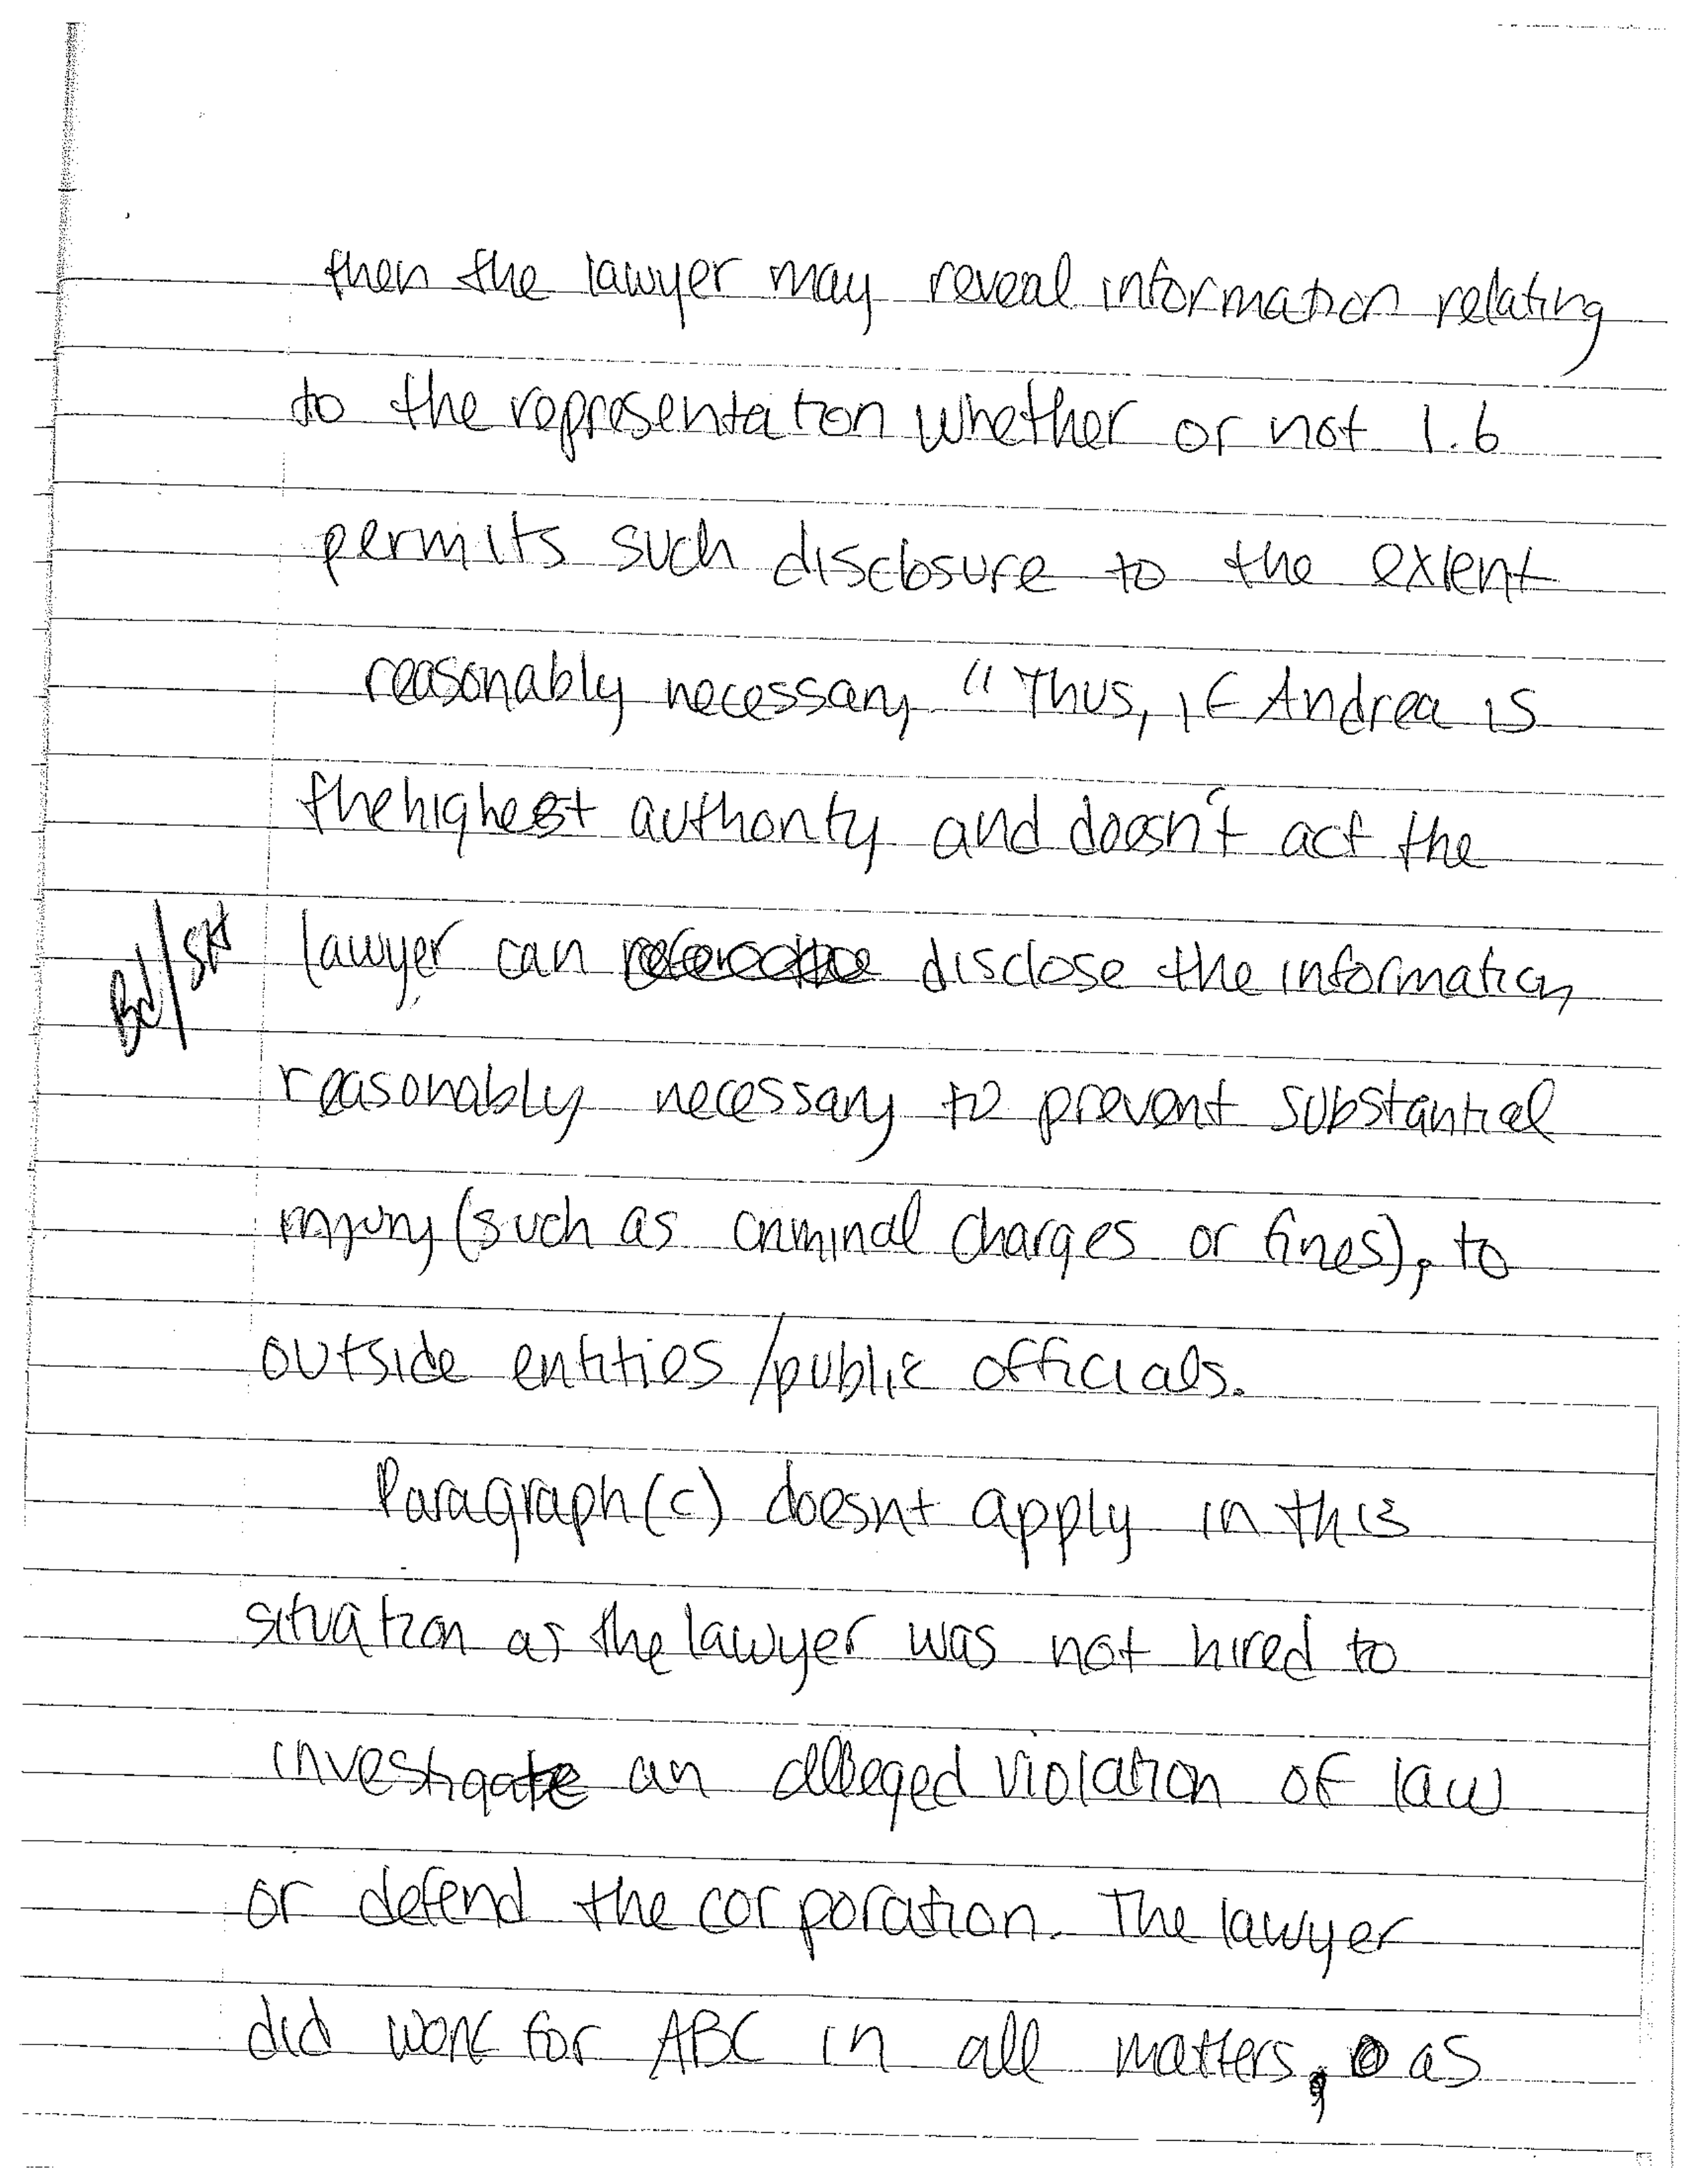 then the lawyer may reveal information relating
to the representation whether or not 1.6
permits such disclosure to the extent
reasonably necessary " Thus, if Andrea is
the highest authority and doesn't act the
lawyer can disclose the information
reasonably necessary to prevent substantial
injury (such as criminal charges or fines), to
outside entities/public officials.
Paragraph (c) doesnt apply in this
situation as the lawyer was not hired to
investigate an alleged violation of law
or defend the corporation. The lawyer
did work for ABC in all matters, as